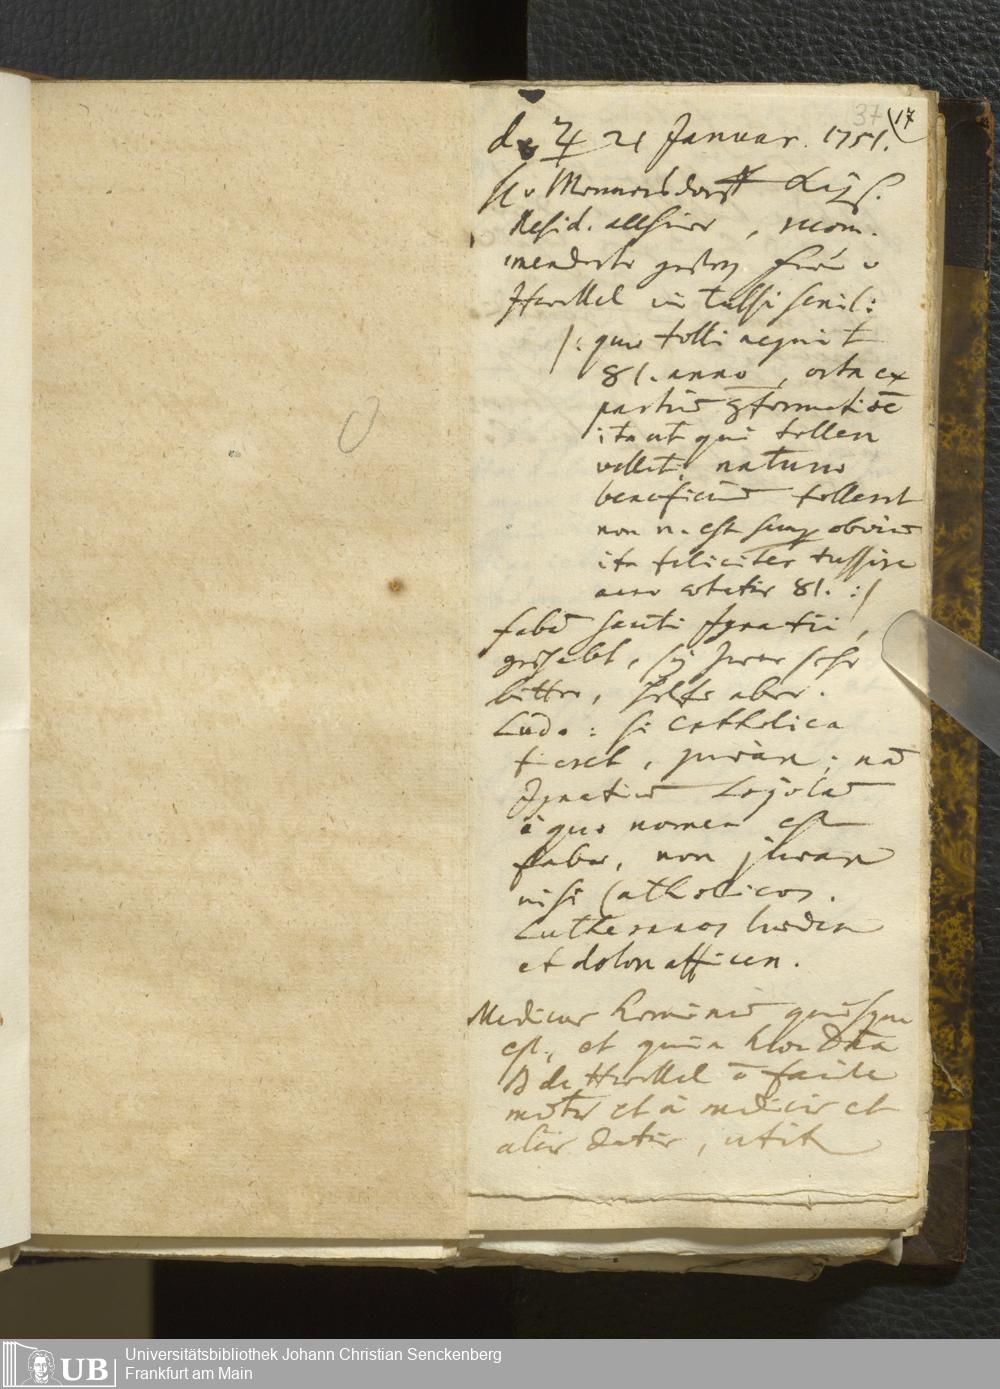 37 17
d. ♃ 21 Januar. 1751.
H. v Mommersdorff
Resid. allhier, recom-
mendirte gestern
Heckel in tussi senil:
/: quae tolli nequit
81. anno, orta ex
partium
ita ut qui tollere
vellet, naturae
beneficium tolleret
non n. est semp obvium
ita feliciter tussire
anno aetatis 81. :/
fabam Sancti Ignatii,
gehabt, sey zwar sehr
bitter, helfe aber.
Ludo: si catholica
fieret, juvare; nam
Ignatium Loyolam
à quo nomen est
fabae, non juvare
nisi Catholicos.
Lutheranos laedere
et dolore afficere.
Medicus hominum quisque
est, et quia hoc
de Heckel facile
et à medicis et
aliis datur, utit
UB
Universitätsbibliothek Johann Christian Senckenberg
Frankfurt am Main